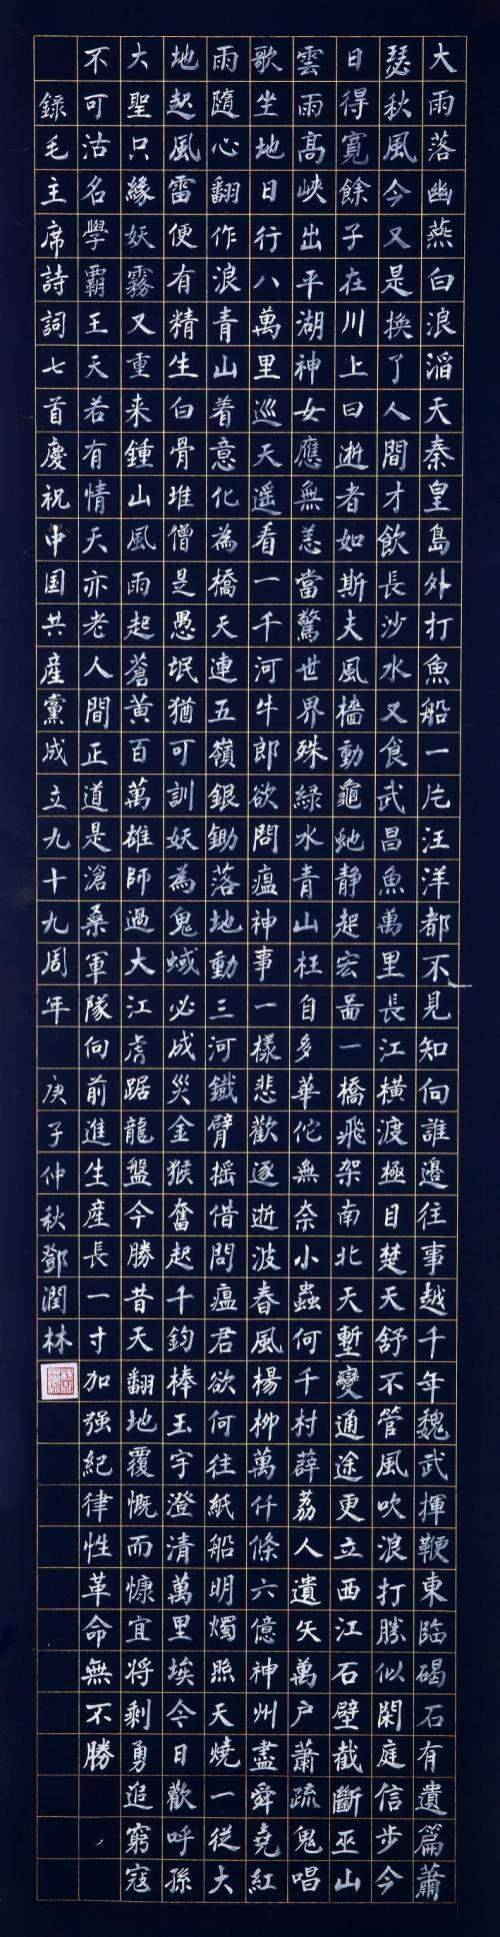 大雨落幽燕白浪滔天秦皇島外打魚船一片汪洋都不見知向誰邊往事越千年魏武揮鞭東臨碣石有遺篇蕭
瑟秋風今又是換了人間才飲長沙水又食武昌魚萬里長江橫渡極目楚天舒不管風吹浪打勝似閑庭信步今
日得寬餘子在川上曰逝者如斯夫風檣動龜虵静起宏啚一橋飛架南北天塹變通途更立西江石壁截斷巫山
雲雨高峽出平湖神女應無恙當驚世界殊綠水青山枉自多華佗無奈小蟲何千村薜荔人遺矢萬户蕭疏鬼唱
歌坐地日行八萬里巡天遥看一千河牛郎欲問瘟神事一樣悲歡逐逝波春風楊柳萬仟條六億神州盡舜堯紅
雨隨心翻作浪青山着意化為橋天連五嶺銀鋤落地動三河鐵臂摇借問瘟君欲何往紙船明燭照天燒一從大
地起風雷便有精生白骨堆僧是愚氓猶可訓妖為鬼蜮必成災金猴奮起千鈞棒玉宇澄清萬里埃今日歡呼孫
大聖只緣妖霧又重来鍾山風雨起蒼黄百萬雄師過大江虎踞龍盤今勝昔天翻地覆慨而慷宜将剩勇追窮寇
不可沽名學霸王天若有情天亦老人間正道是滄桑軍隊向前進生産長一寸加强紀律性革命無不勝
錄毛主席詩詞七首慶祝中国共產黨成立九十九周年 庚子仲秋鄧潤林